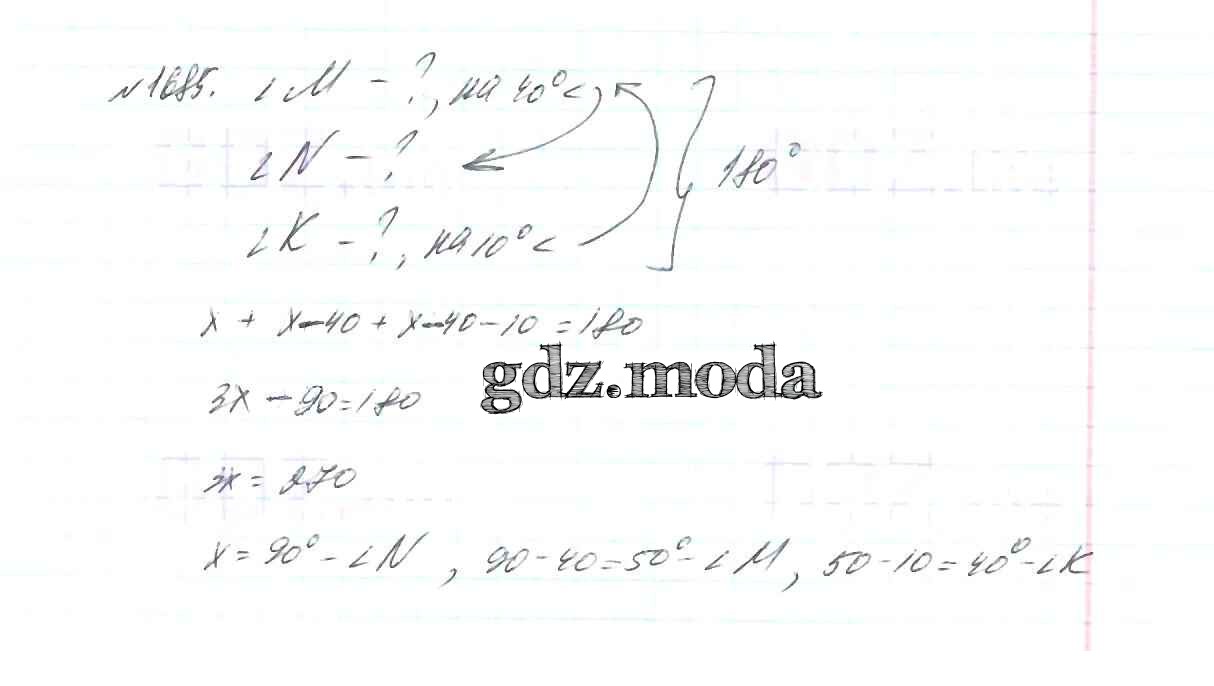 №1685. ∠M - ?, на 40° <
∠N - ?
∠K - ?, на 10° <
180°
x + x-40 + x-40-10 = 180
3x - 90 = 180
gdz.moda
3x = 270
x = 90° - ∠N, 90-40=50° - ∠M, 50-10=40° - ∠K